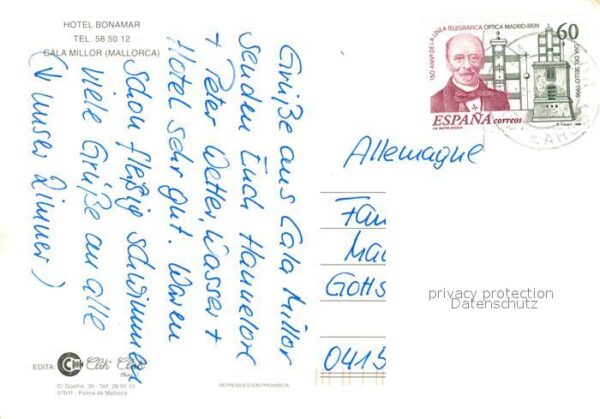 HOTEL BONAMAR
TEL. 58 50 12
CALA MILLOR (MALLORCA)
Grüße aus Cala Millor
senden Euch Hannelore
+ Peter Wetter, Wasser +
Hotel sehr gut. Waren
schon fleißig schwimmen
viele Grüße an alle
(↓ unser Zimmer)
EDITA:
Clik Clak
C. Goethe, 30 - Tel. 28 91 13
07011 - Palma de Mallorca
REPRODUCCION PROHIBIDA
150 ANIV DE LA LINEA TELEGRAFICA OPTICA MADRID-IRUN
60
DIA DEL SELLO 1996
ESPAÑA correos
Allemagne
Fam
Mac
Gotts
0415
privacy protection
Datenschutz